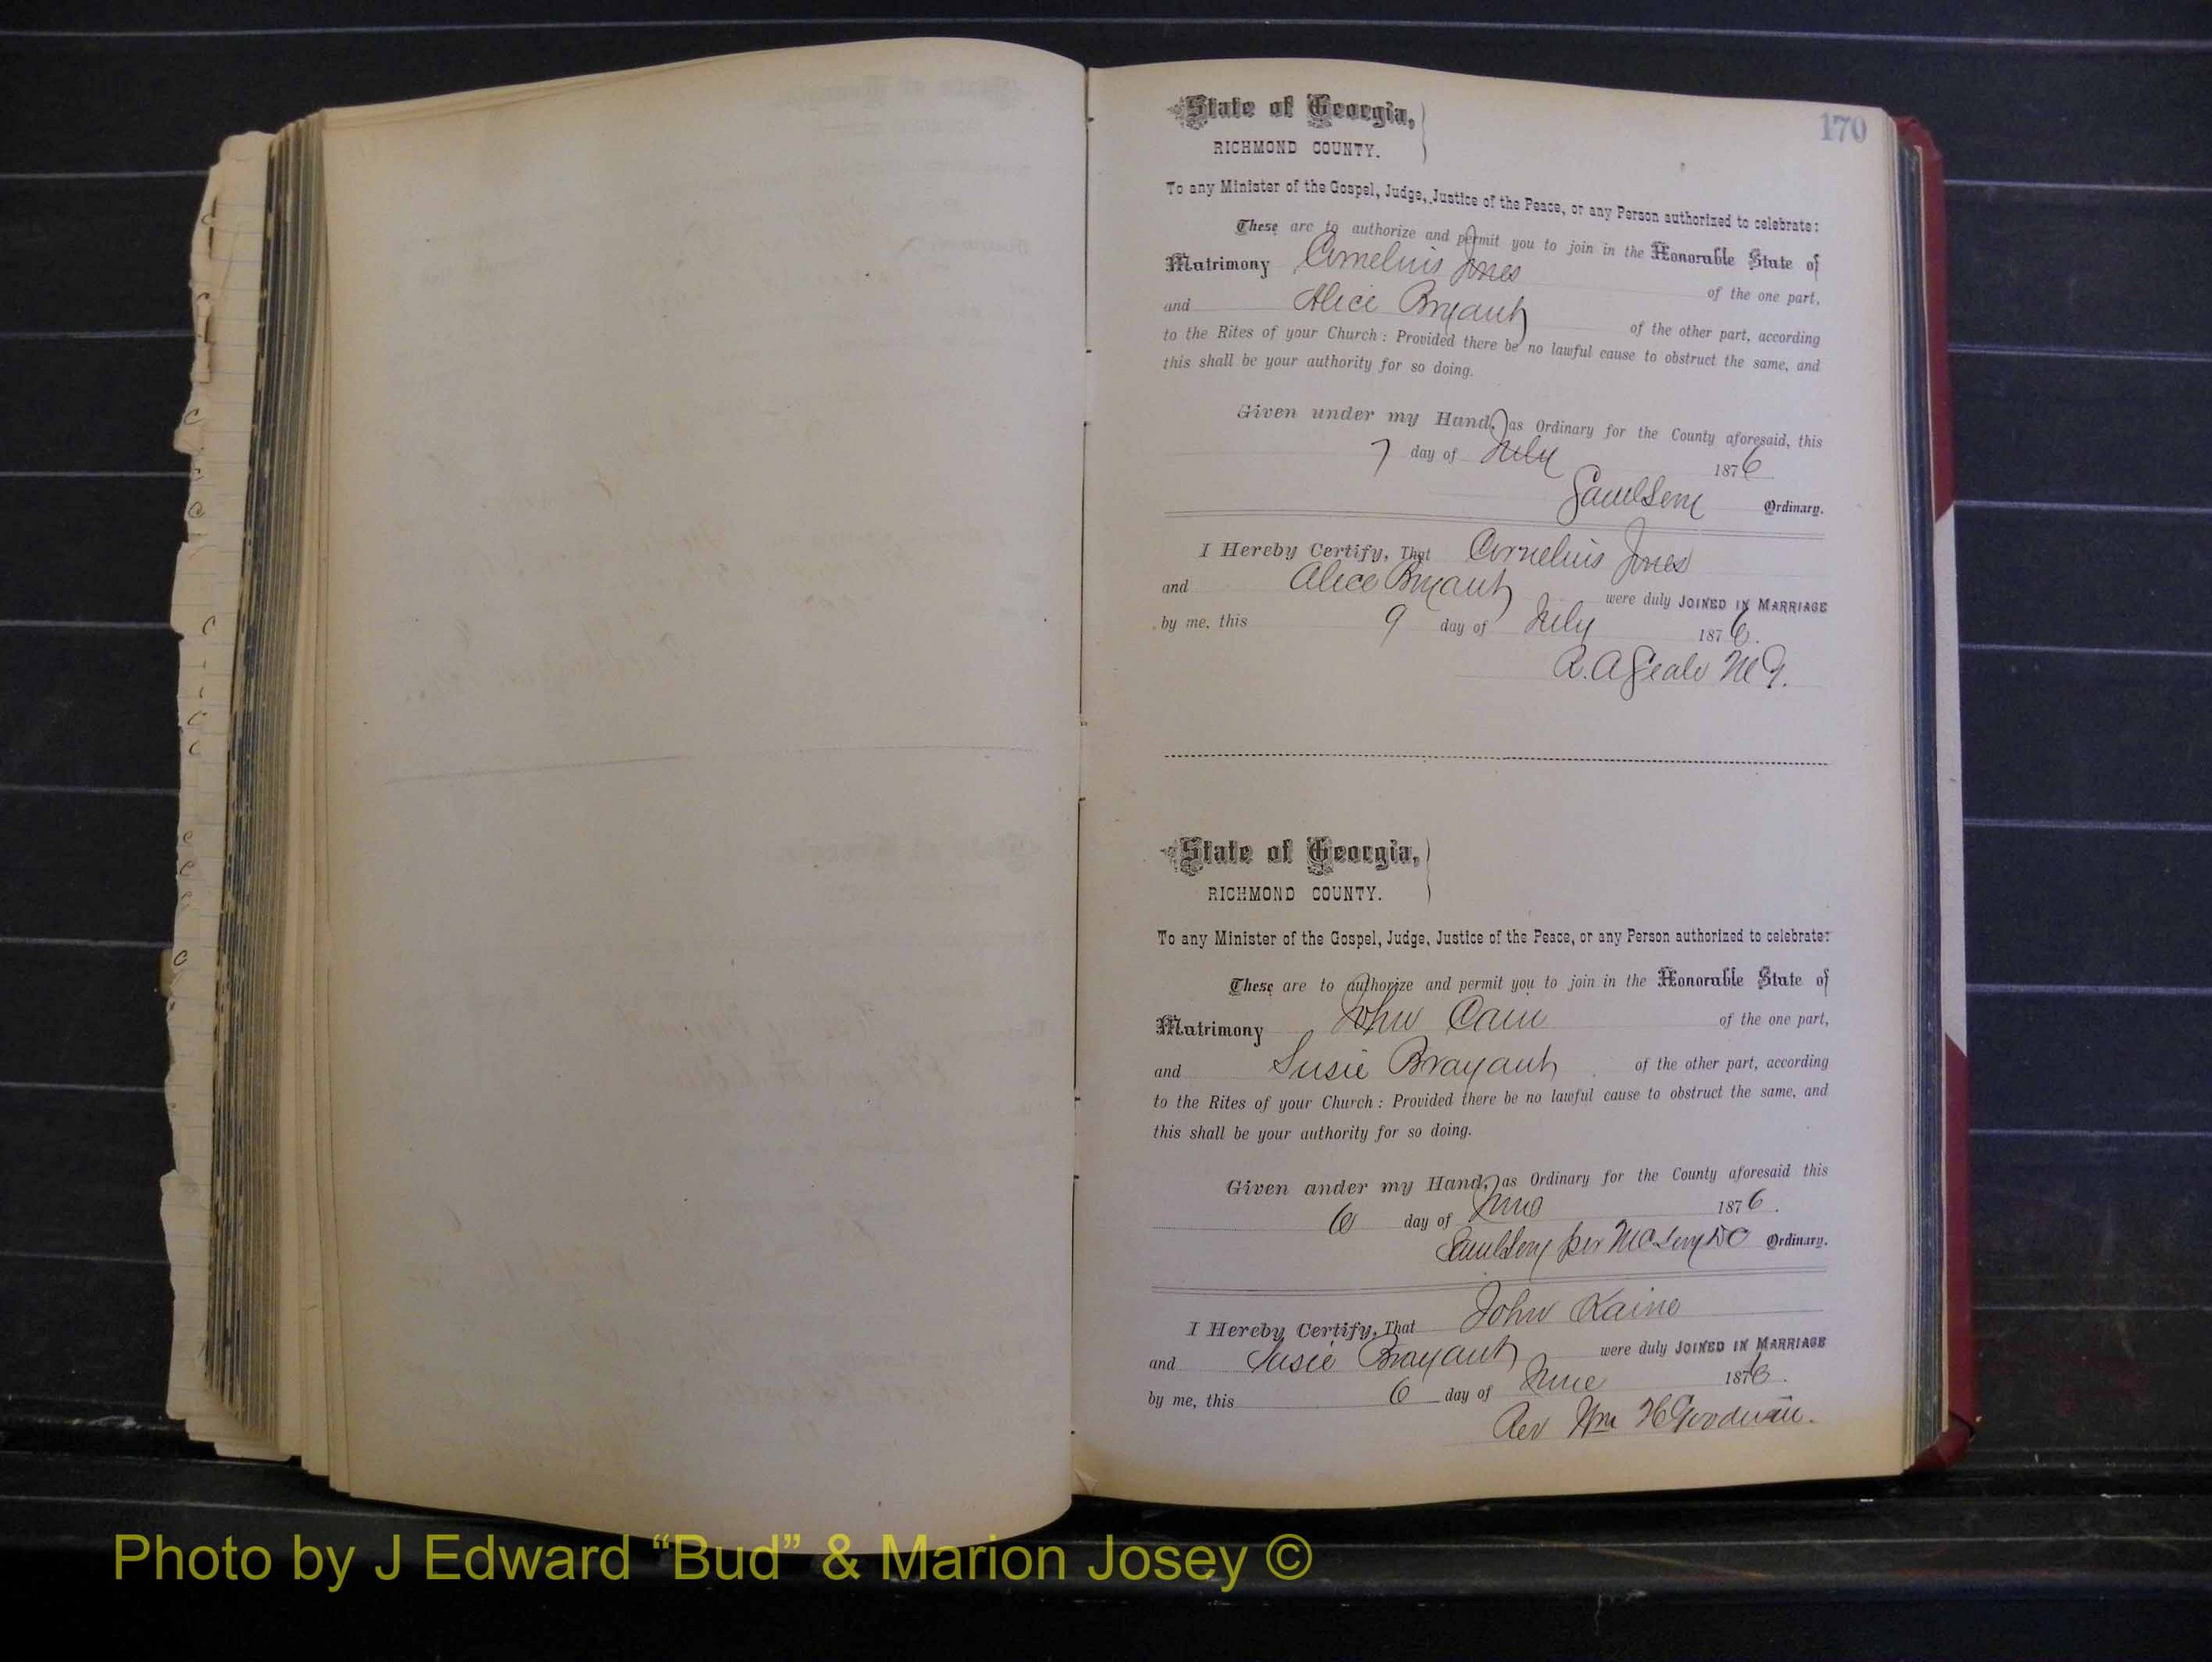 170
State of Georgia,
RICHMOND COUNTY.
To any Minister of the Gospel, Judge, Justice of the Peace, or any Person authorized to celebrate:
These are to authorize and permit you to join in the Honorable State of
Matrimony Cornelius Jones of the one part,
and Alice Bryant of the other part, according
to the Rites of your Church: Provided there be no lawful cause to obstruct the same, and
this shall be your authority for so doing.
Given under my Hand, as Ordinary for the County aforesaid, this
7 day of July 1876
Saml Levy Ordinary.
I Hereby Certify, That Cornelius Jones
and Alice Bryant were duly JOINED IN MARRIAGE
by me, this 9 day of July 1876.
R. A
State of Georgia,
RICHMOND COUNTY.
To any Minister of the Gospel, Judge, Justice of the Peace, or any Person authorized to celebrate:
These are to authorize and permit you to join in the Honorable State of
Matrimony John Cain of the one part,
and Susie Brayant of the other part, according
to the Rites of your Church: Provided there be no lawful cause to obstruct the same, and
this shall be your authority for so doing.
Given under my Hand, as Ordinary for the County aforesaid this
6 day of June 1876.
Saml Levy per Levy Ordinary.
I Hereby Certify, That John Kaine
and Susie Brayant were duly JOINED IN MARRIAGE
by me, this 6 day of June 1876.
Rev Wm H Goodman.
Photo by J Edward “Bud” & Marion Josey ©